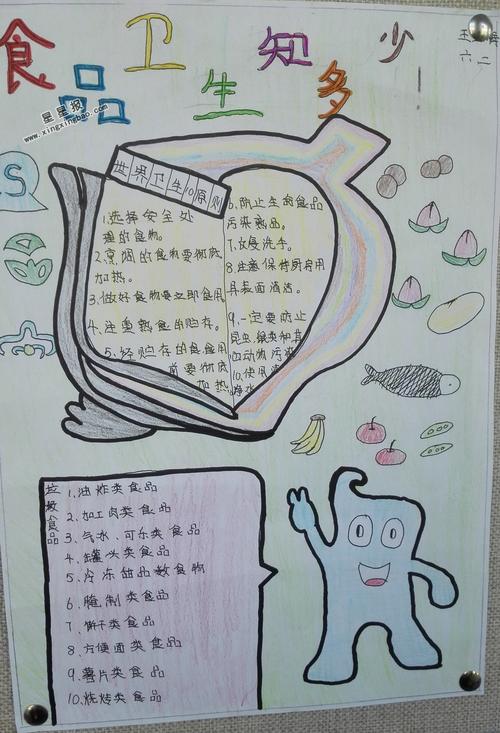 食品卫生知多少！
六二
星星报
www.xingxingbao.com
世界卫生10原则
1.选择安全处
理的食物。
2.烹调的食物要彻底
加热。
3.做好食物要立即食用
4.注重熟食的贮存。
5.经贮存的食食用
前要彻底
加热
6.防止生的食品
污染熟品。
7.反复洗手。
8.注意保持厨房用
具表面清洁。
9.一定要防止
昆虫鼠类和其
动物污染
10.使用
净水
垃圾食品
1.油炸类食品
2.加工肉类食品
3.气水、可乐类食品
4.罐头类食品
5.冷冻甜品数食物
6.腌制类食品
7.饼干类食品
8.方便面类食品
9.薯片类食品
10.烧烤类食品